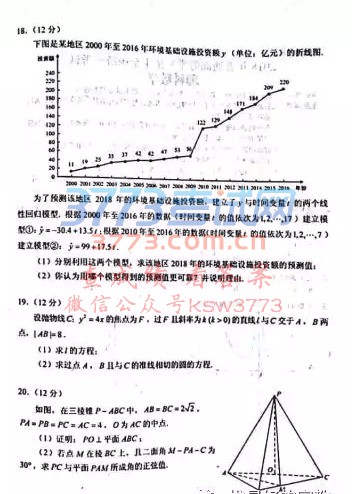 18.(12分)
下图是某地区2000年至2016年环境基础设施投资额y(单位:亿元)的折线图.
投资额
240
220
200
180
160
140
120
100
80
60
40
20
0
11 19 25 35 37 42 42 47 53 56 122 129 148 171 184 209 220
2000 2001 2002 2003 2004 2005 2006 2007 2008 2009 2010 2011 2012 2013 2014 2015 2016 年份
为了预测该地区2018年的环境基础设施投资额,建立了y与时间变量t的两个线
性回归模型.根据2000年至2016年的数据(时间变量t的值依次为1,2,…,17)建立模
型①:ŷ=-30.4+13.5t;根据2010年至2016年的数据(时间变量t的值依次为1,2,…,7)
建立模型②:ŷ=99+17.5t.
(1)分别利用这两个模型,求该地区2018年的环境基础设施投资额的预测值;
(2)你认为用哪个模型得到的预测值更可靠?并说明理由.
微信公众号ksw3773
19.(12分)
设抛物线C:y²=4x的焦点为F,过F且斜率为k(k>0)的直线l与C交于A,B两
点,|AB|=8.
(1)求l的方程;
(2)求过点A,B且与C的准线相切的圆的方程.
20.(12分)
如图,在三棱锥P-ABC中,AB=BC=2√2,
PA=PB=PC=AC=4,O为AC的中点.
(1)证明:PO⊥平面ABC;
(2)若点M在棱BC上,且二面角M-PA-C为
30°,求PC与平面PAM所成角的正弦值.
P
A
O
C